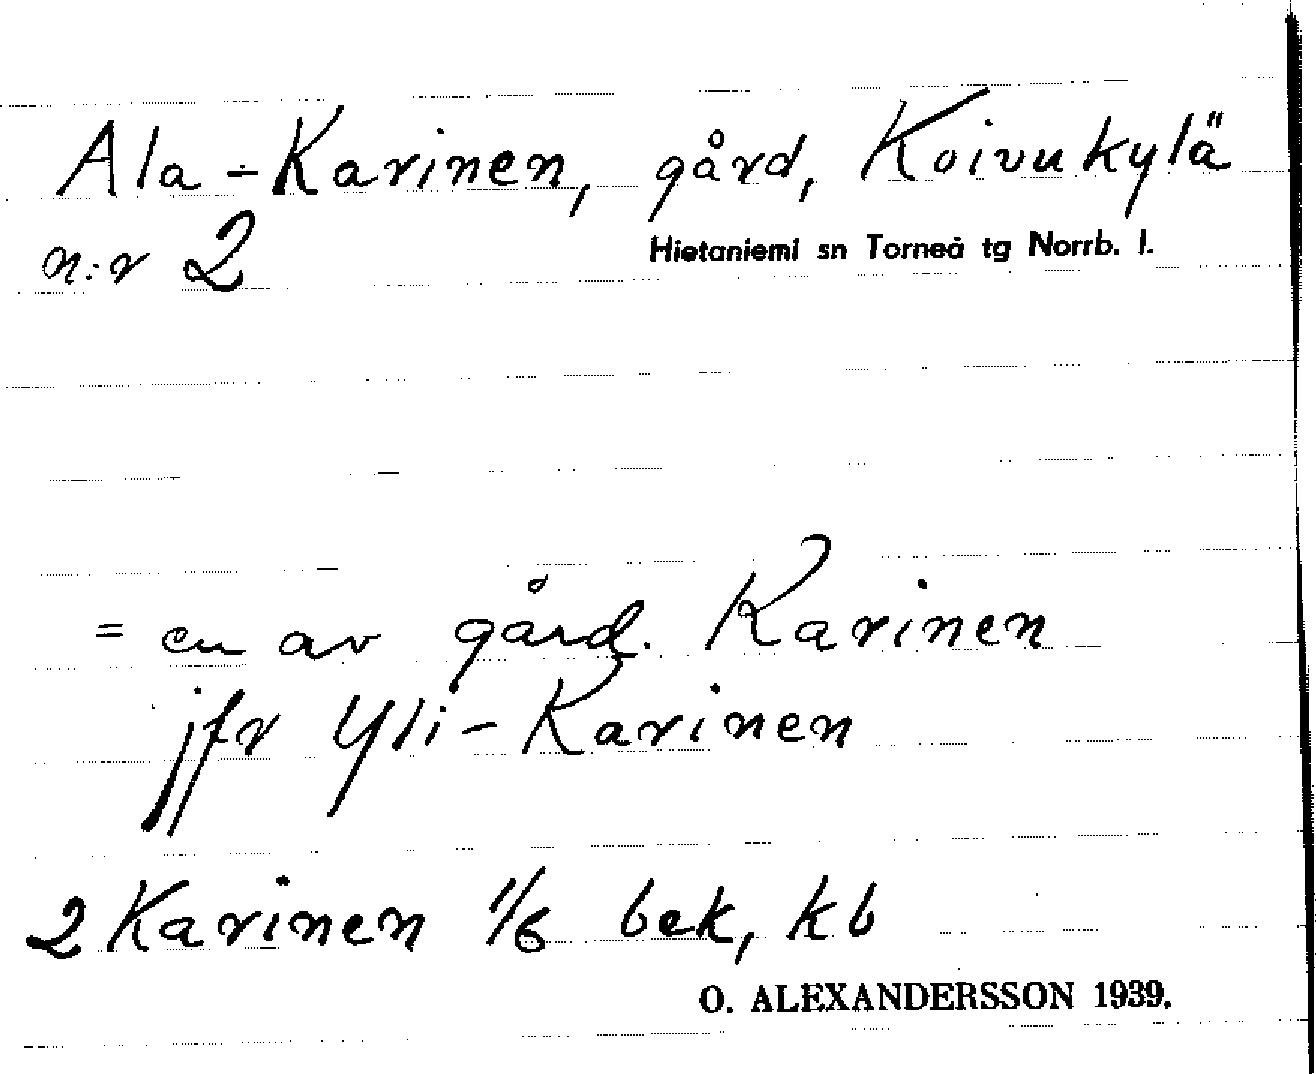 Ala-Karinen, gård, Koivukylä
n:r 2
Hietaniemi sn Torneå tg Norrb. l.
= en av gård. Karinen
jfr Yli-Karinen
2 Karinen 1/6 bek, kb
O. ALEXANDERSSON 1939.